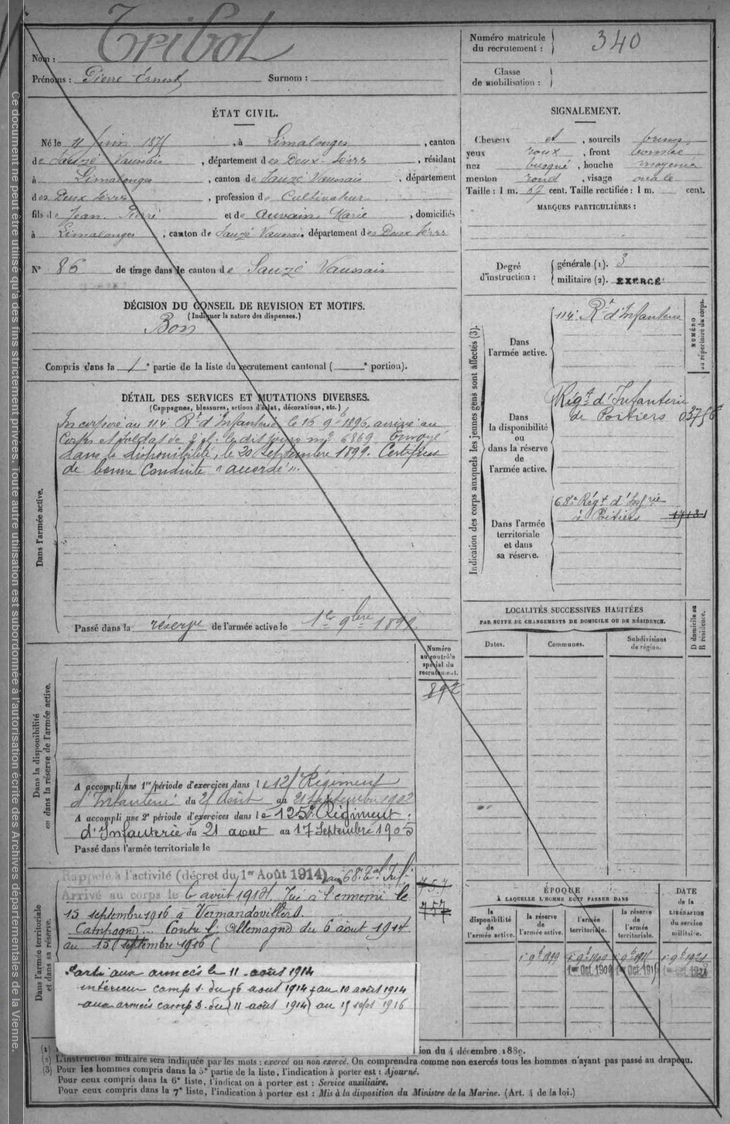 Ce document ne peut être utilisé qu'à des fins strictement privées. Toute autre utilisation est subordonnée à l'autorisation écrite des Archives départementales de la Vienne.
Nom : Tribot
Prénoms : Pierre Ernest Surnom :
Numéro matricule du recrutement : 340
Classe de mobilisation :
ÉTAT CIVIL.
Né le 11 Juin 187 , à Limalonges , canton
de Sauzé Vaussais , département des Deux-Sèvres , résidant
à Limalonges , canton de Sauzé Vaussais , département
des Deux Sèvres , profession de Cultivateur
fils de Jean Pierre et de Marie , domiciliés
à Limalonges , canton de Sauzé Vaussais, département des Deux Sèvres
N° 86 de tirage dans le canton de Sauzé Vaussais
SIGNALEMENT.
Cheveux et , sourcils bruns
yeux roux , front bombé
nez busqué , bouche moyenne
menton rond , visage ovale
Taille : 1 m. cent. Taille rectifiée : 1 m. cent.
MARQUES PARTICULIÈRES :
Degré d'instruction :
générale (1). 3
militaire (2). EXERCÉ
DÉCISION DU CONSEIL DE REVISION ET MOTIFS.
(Indiquer la nature des dispenses.)
Bon
Compris dans la 1e partie de la liste du recrutement cantonal ( e portion).
DÉTAIL DES SERVICES ET MUTATIONS DIVERSES.
(Campagnes, blessures, actions d'éclat, décorations, etc.)
Dans l'armée active.
Incorporé au 114e Rt d'Infanterie le 15 9bre 1896, arrivé au
Corps et soldat de 2e cl. le dit jour no 6869. Envoyé
dans la disponibilité, le 20 Septembre 1899. Certificat
de bonne Conduite "accordé".
Passé dans la réserve de l'armée active le 1er 9bre 1899
Indication des corps auxquels les jeunes gens sont affectés (3).
NUMÉRO au répertoire du corps.
Dans l'armée active.
114e Rt d'Infanterie
Dans la disponibilité ou dans la réserve de l'armée active.
Rigt d'Infanterie
de Poitiers
Dans l'armée territoriale et dans sa réserve.
68e Régt d'Infrie
à Poitiers
LOCALITÉS SUCCESSIVES HABITÉES
PAR SUITE DE CHANGEMENTS DE DOMICILE OU DE RÉSIDENCE.
D domicile ou R résidence.
Dates. Communes. Subdivisions de région.
Numéro au contrôle spécial du recrutement.
892
Dans la disponibilité ou dans la réserve de l'armée active.
A accompli une 1re période d'exercices dans le 125e Régiment
d'Infanterie du 25 Août au 21 Septembre 1902
A accompli une 2e période d'exercices dans le 125e Régiment
d'Infanterie du 21 aout au 17 Septembre 1905
Passé dans l'armée territoriale le
Dans l'armée territoriale et dans sa réserve.
Rappelé à l'activité (décret du 1er Août 1914) au 68e Inf.
Arrivé au corps le 6 août 1914. Tué à l'ennemi le
15 septembre 1916 à Vermandovillers
Campagne Contre l'Allemagne du 6 août 1914
au 15 Septembre 1916
757
757
Parti aux armées le 11 août 1914
intérieur camp s. du 6 aout 1914 au 10 aout 1914
aux armées camp d. du 11 aout 1914 au 15 sept 1916
ÉPOQUE
À LAQUELLE L'HOMME DOIT PASSER DANS
la disponibilité de l'armée active.
la réserve de l'armée active.
l'armée territoriale.
la réserve de l'armée territoriale.
DATE de la LIBÉRATION du service militaire.
1er 9bre 1899
1er Oct. 1909
1er Oct. 1915
(1) ion du 4 décembre 1889.
(2) L'instruction militaire sera indiquée par les mots : exercé ou non exercé. On comprendra comme non exercés tous les hommes n'ayant pas passé au drapeau.
(3) Pour les hommes compris dans la 5e partie de la liste, l'indication à porter est : Ajourné.
Pour ceux compris dans la 6e liste, l'indication à porter est : Service auxiliaire.
Pour ceux compris dans la 7e liste, l'indication à porter est : Mis à la disposition du Ministre de la Marine. (Art. 4 de la loi.)